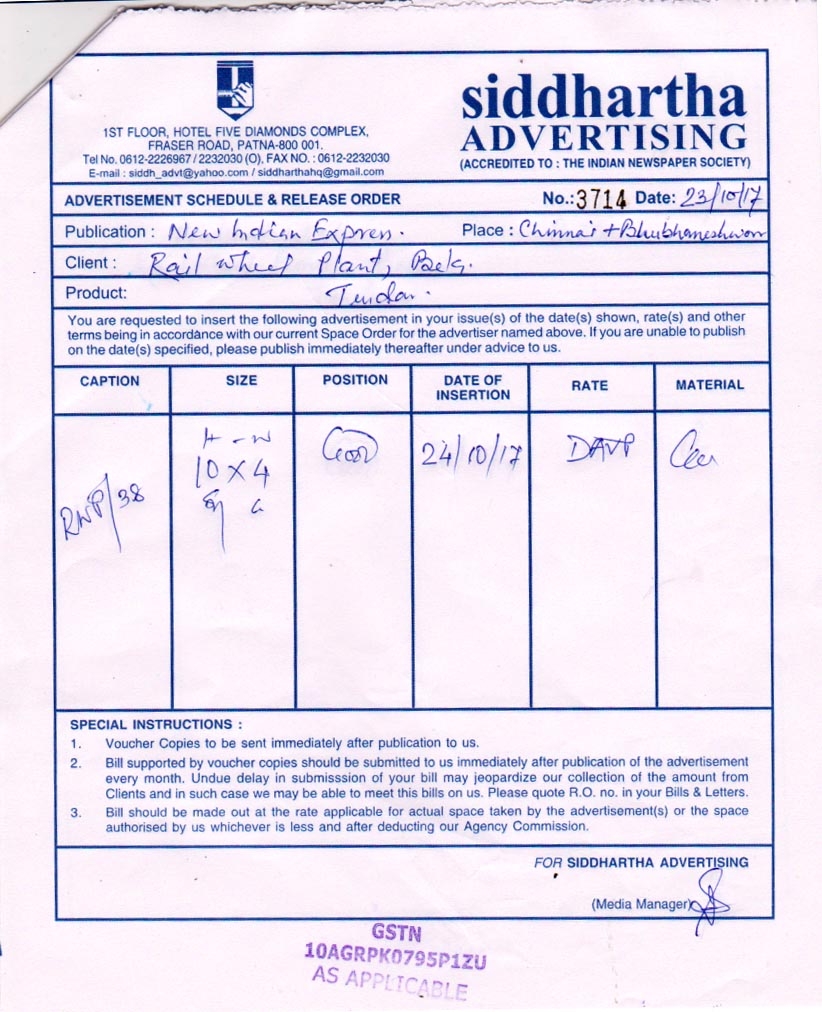 siddhartha
ADVERTISING
(ACCREDITED TO : THE INDIAN NEWSPAPER SOCIETY)
1ST FLOOR, HOTEL FIVE DIAMONDS COMPLEX,
FRASER ROAD, PATNA-800 001.
Tel No. 0612-2226967 / 2232030 (O), FAX NO. : 0612-2232030
E-mail : siddh_advt@yahoo.com / siddharthahq@gmail.com
ADVERTISEMENT SCHEDULE & RELEASE ORDER No.: 3714 Date: 23/10/17
Publication : New Indian Express. Place : Chinnai + Bhubhaneshwar
Client : Rail Wheel Plant, Bela.
Product: Tender.
You are requested to insert the following advertisement in your issue(s) of the date(s) shown, rate(s) and other
terms being in accordance with our current Space Order for the advertiser named above. If you are unable to publish
on the date(s) specified, please publish immediately thereafter under advice to us.
CAPTION SIZE POSITION DATE OF INSERTION RATE MATERIAL
RWP/38 H - W 10 x 4 Good 24/10/17 DAVP
SPECIAL INSTRUCTIONS :
1. Voucher Copies to be sent immediately after publication to us.
2. Bill supported by voucher copies should be submitted to us immediately after publication of the advertisement
every month. Undue delay in submisssion of your bill may jeopardize our collection of the amount from
Clients and in such case we may be able to meet this bills on us. Please quote R.O. no. in your Bills & Letters.
3. Bill should be made out at the rate applicable for actual space taken by the advertisement(s) or the space
authorised by us whichever is less and after deducting our Agency Commission.
FOR SIDDHARTHA ADVERTISING
(Media Manager)
GSTN
10AGRPK0795P1ZU
AS APPLICABLE